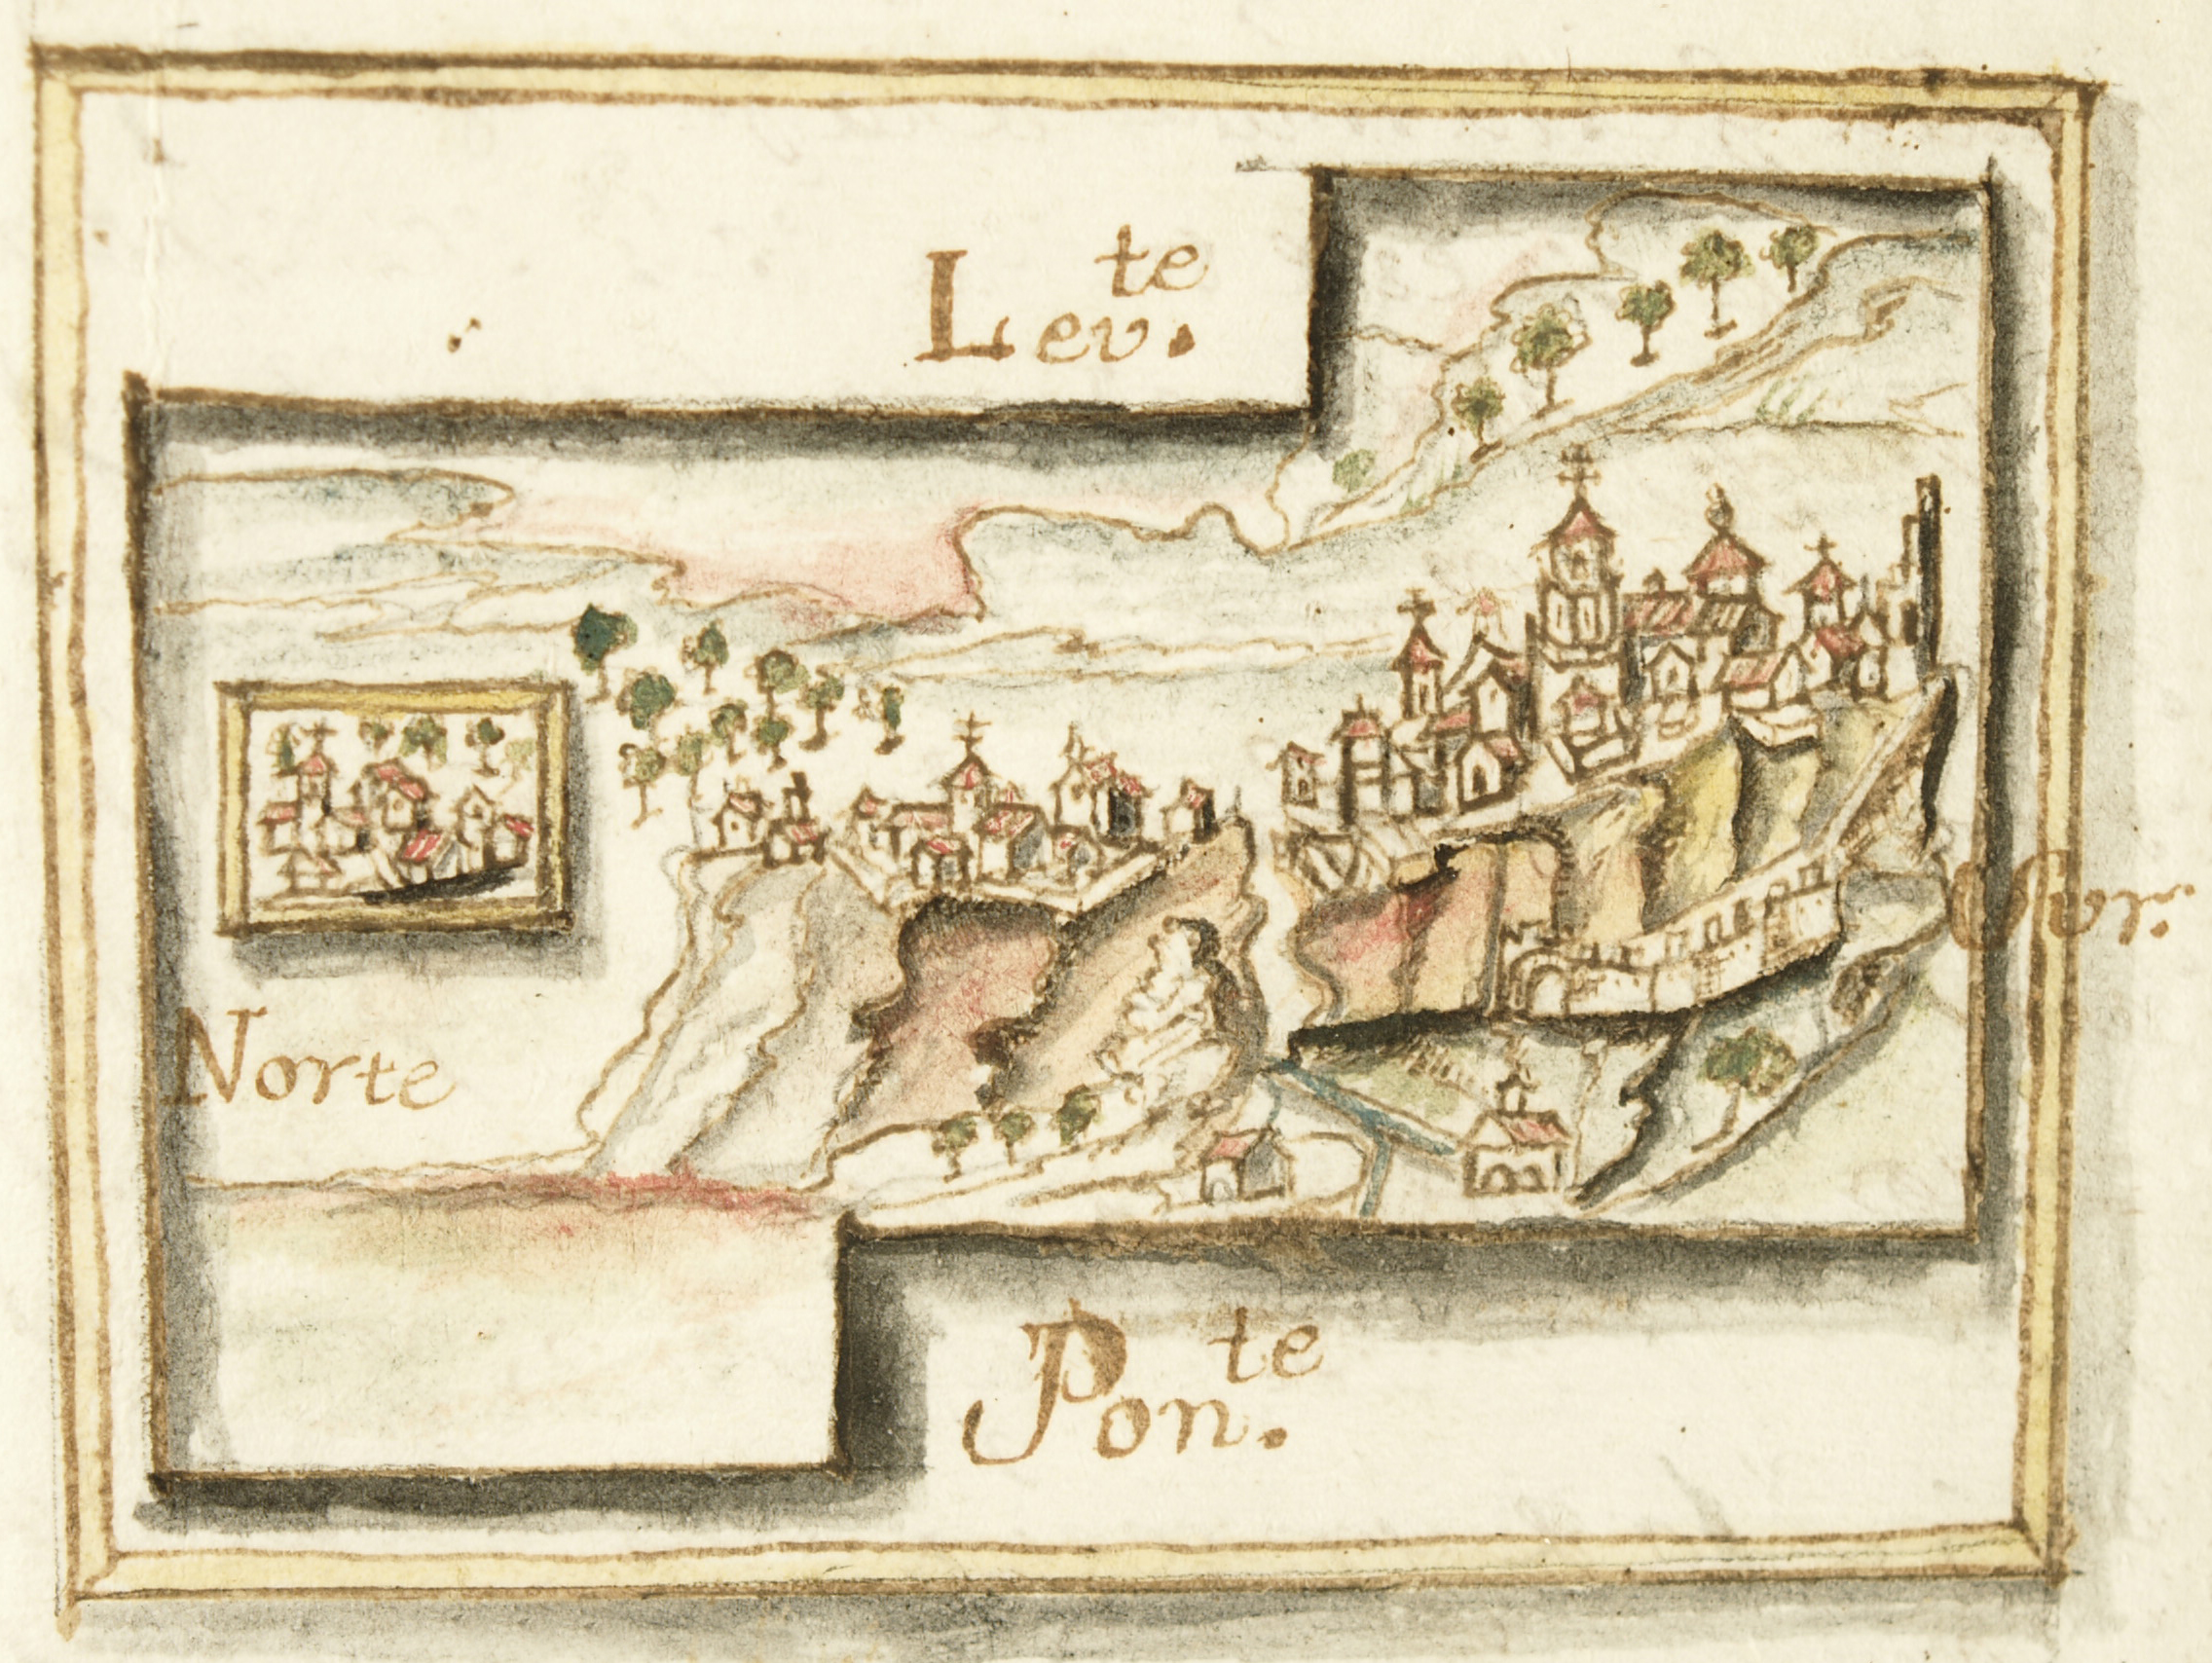 Lev.te
Sur.
Norte
Pon.te